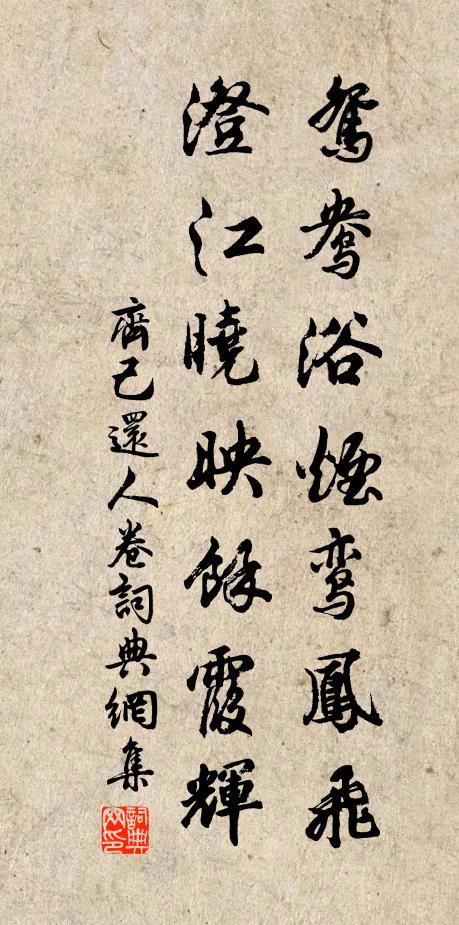 鴛鴦浴煙鸞鳳飛
澄江曉映餘霞輝
齊己還人卷詞典網集
詞典网印